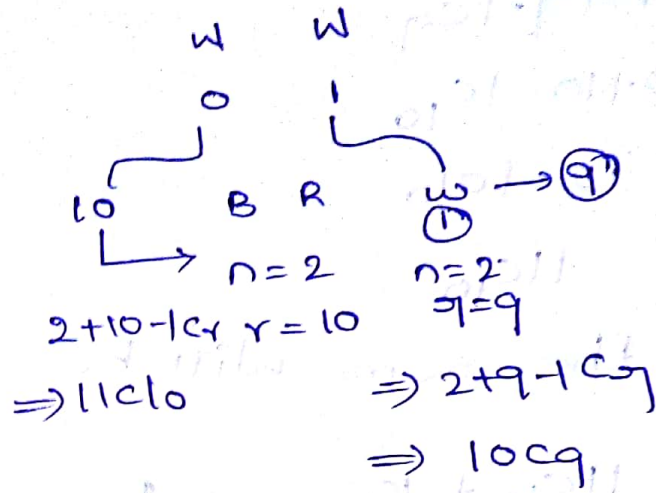 W W
0 1
10 B R W → 9
1
→ n=2 n=2
2+10-1Cr r=10 r=9
⇒ 11C10 ⇒ 2+9-1C9
⇒ 10C9